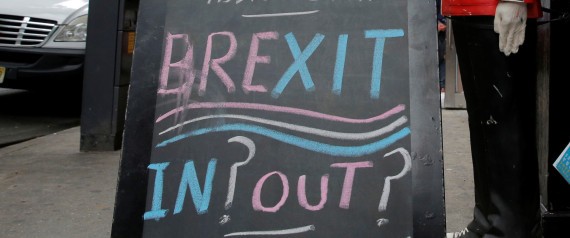 BREXIT
IN? OUT?